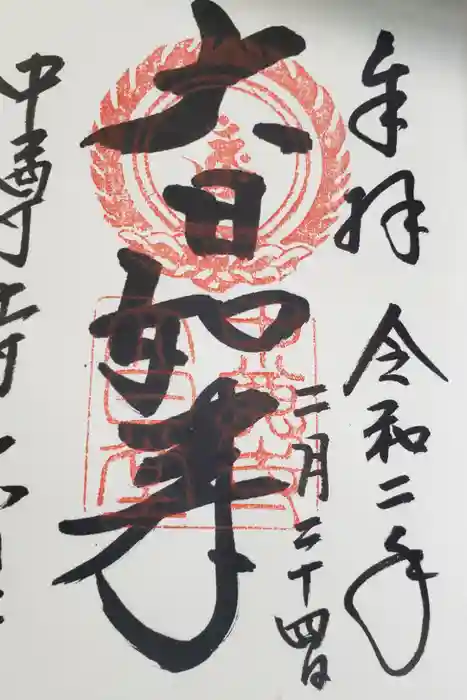 奉拝
令和二年
二月二十四日
大日如来
中尊寺